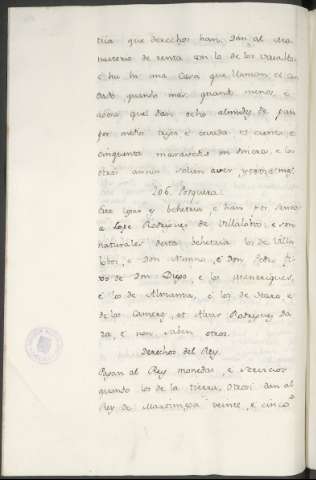 tria que derechos han, dan al mo
nesterio de renta con lo de los vasallos
é hu ha una casa que llaman
dado quando mas, quando menos, e
agora que dan ocho almudes de pan
por medio trigo é cevada, et ciento e
cinquenta maravedis en dinero, e los
otros annos solien aver
206. Porquera.
Este logar es behetria, e han por sennor
a Lope Rodriguez de Villalobos, e son
naturales desta behetria los de Villa
lobos, e Don Nunno, é Don Pedro fi
jo de Don Diego, e los Manrriquez,
é los de Almansa, é los de Haro, e
de los Camero, et Alvar Rodriguez Da
za, e non saben otros.
Derechos del Rey.
Pagan al Rey monedas, e servicios
quando los de la tierra, Otrosi dan al
Rey de Martiniega veinte, e cinco